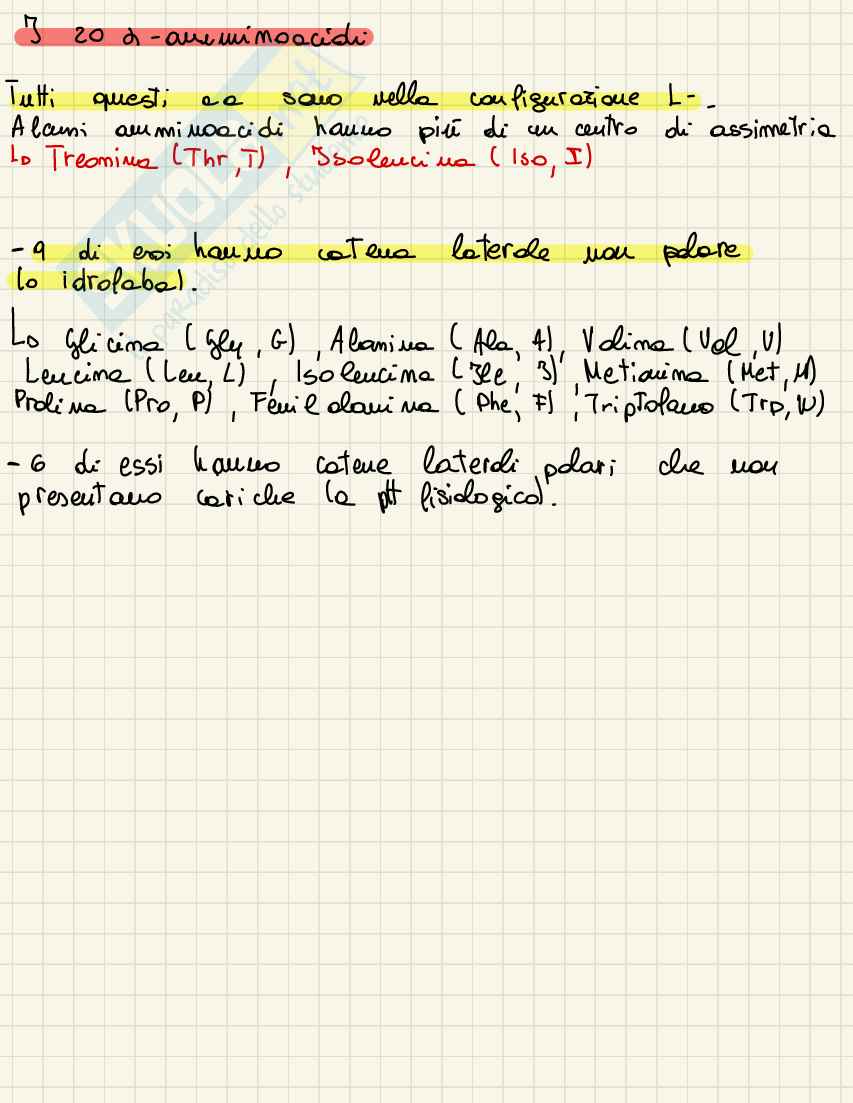 I 20 α-amminoacidi
Tutti questi aa sono nella configurazione L-.
Alcuni amminoacidi hanno più di un centro di assimetria
↳ Treonina (Thr, T), Isoleucina (Iso, I)
- 9 di essi hanno catena laterale non polare
(o idrofoba).
↳ Glicina (Gly, G), Alanina (Ala, A), Valina (Val, V)
Leucina (Leu, L), Isoleucina (Ile, I), Metionina (Met, M)
Prolina (Pro, P), Fenilalanina (Phe, F), Triptofano (Trp, W)
- 6 di essi hanno catene laterali polari che non
presentano cariche (a pH fisiologico).
SKUOLA.net
il paradiso dello studente